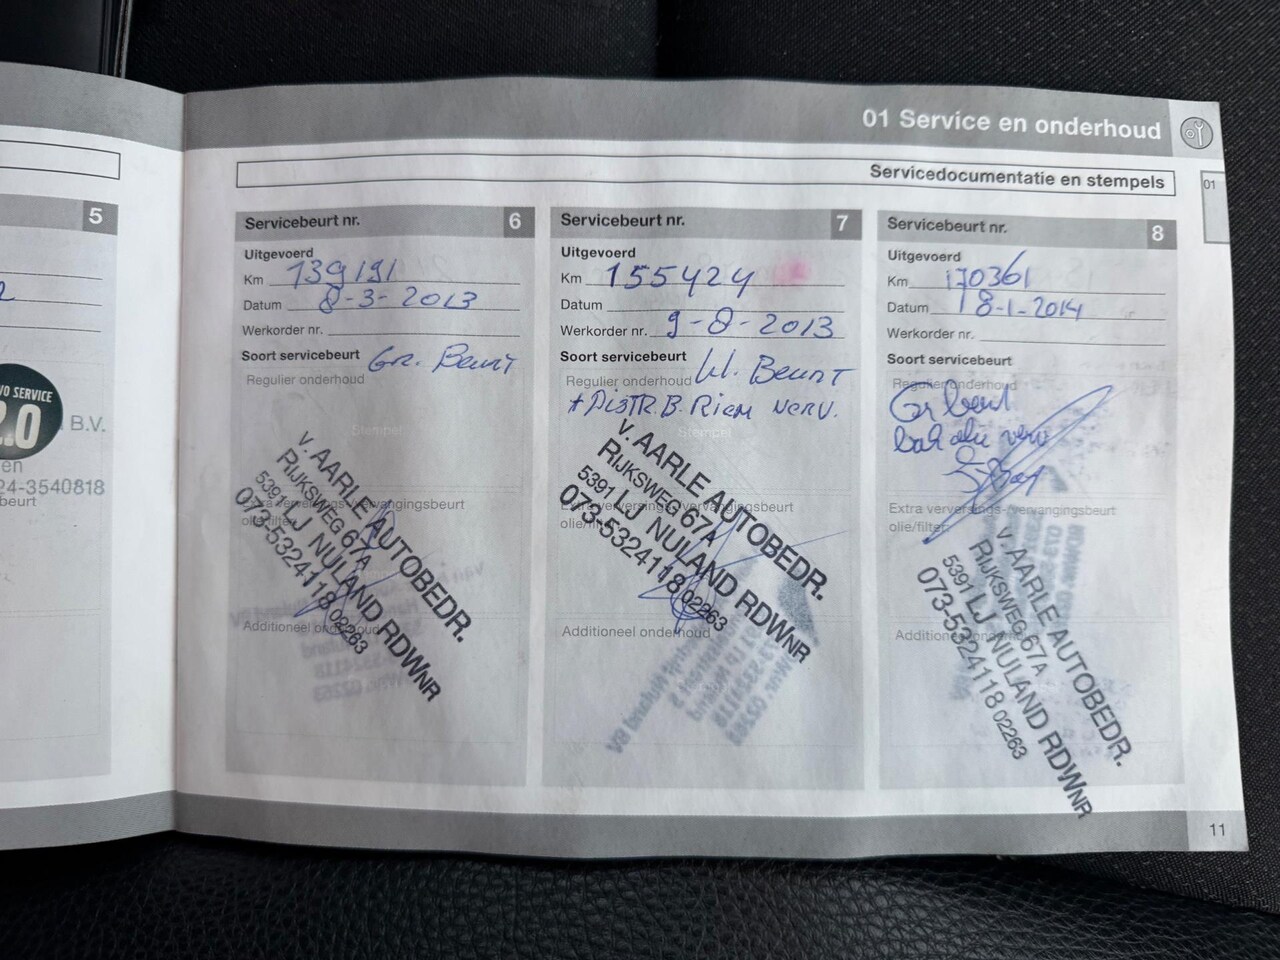 01 Service en onderhoud
Servicedocumentatie en stempels
01
5
VO SERVICE
2.0
B.V.
en
24-3540818
beurt
Servicebeurt nr. 6
Uitgevoerd
Km 139191
Datum 8-3-2013
Werkorder nr.
Soort servicebeurt Gr. Beurt
Regulier onderhoud
Stempel
Extra verversings-/vervangingsbeurt
olie/filter
v. AARLE AUTOBEDR.
RIJKSWEG 67A
5391 LJ NULAND RDWNR
073-5324118 02263
Additioneel onderhoud
Servicebeurt nr. 7
Uitgevoerd
Km 155424
Datum
Werkorder nr. 9-8-2013
Soort servicebeurt
Regulier onderhoud Kl. Beurt
+ DISTR.B. RIEM VERV.
Stempel
Extra verversings-/vervangingsbeurt
olie/filter
v. AARLE AUTOBEDR.
RIJKSWEG 67A
5391 LJ NULAND RDWNR
073-5324118 02263
Additioneel onderhoud
Servicebeurt nr. 8
Uitgevoerd
Km 170361
Datum 18-1-2014
Werkorder nr.
Soort servicebeurt
Regulier onderhoud
Gr beurt
bak olie verv
Extra verversings-/vervangingsbeurt
olie/filter
v. AARLE AUTOBEDR.
RIJKSWEG 67A
5391 LJ NULAND RDWNR
073-5324118 02263
Additioneel onderhoud
11